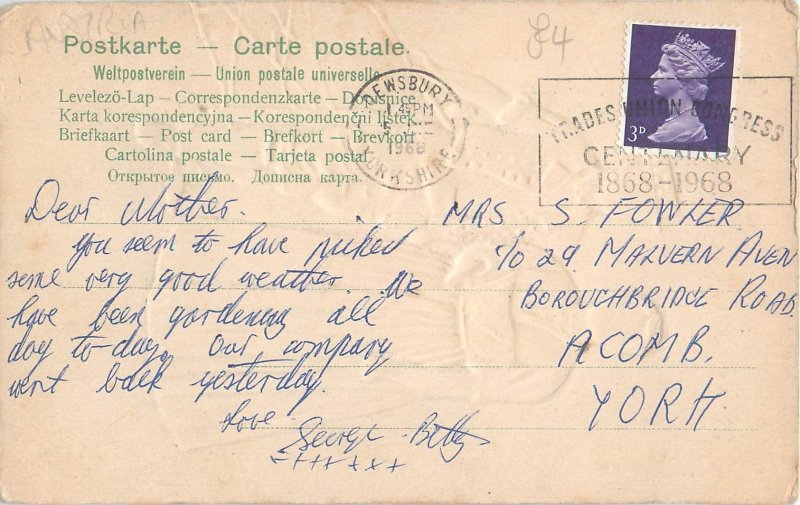 AUSTRIA
£4
Postkarte — Carte postale.
Weltpostverein — Union postale universelle.
Levelezö-Lap — Correspondenzkarte — Dopisnice.
Karta korespondencyjna — Korespondenční lístek.
Briefkaart — Post card — Brefkort — Brevkort.
Cartolina postale — Tarjeta postal.
Открытое письмо. Дописна карта.
DEWSBURY
1 45PM
1968
YORKSHIRE
TRADES UNION CONGRESS
CENTENARY
1868-1968
3D
Dear Mother.
you seem to have picked
some very good weather. We
have been gardening all
day to-day. Our company
went back yesterday.
Love
George Betty
+++++++
MRS S. FOWLER
c/o 29 MALVERN AVEN
BOROUGHBRIDGE ROAD.
ACOMB.
YORK.